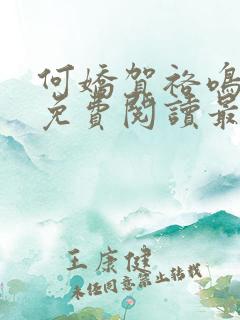 何嬌賀袼鳴
免費閱讀最
王康健
未经同意禁止转载